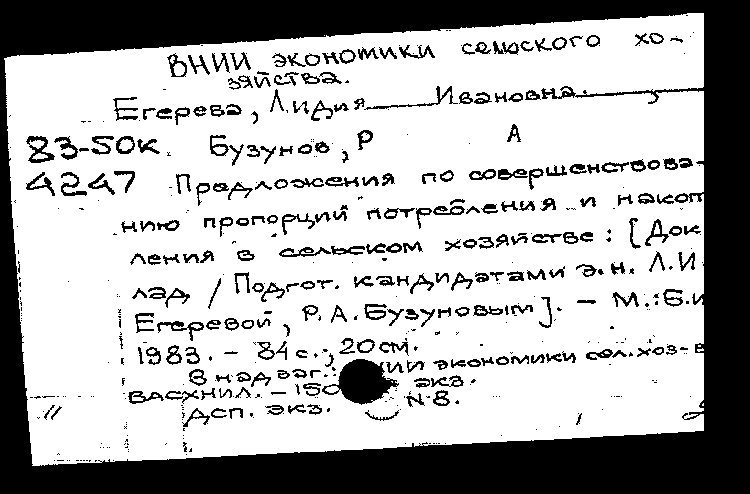 ВНИИ экономики сельского хо-
зяйства.
Егерева, Лидия Ивановна.
83-50к Бузунов, Р А
4247 Предложения по совершенствова-
нию пропорций потребления и накоп
ления в сельском хозяйстве: [Док
лад / Подгот. кандидатами э.н. Л.И
Егеревой, Р.А.Бузуновым]. - М.: Б.и
1983. - 84 с.; 20 см.
В надзаг.: НИИ экономики сел.хоз-в
ВАСХНИЛ. - 150 экз.
ДСП. экз. N 8.